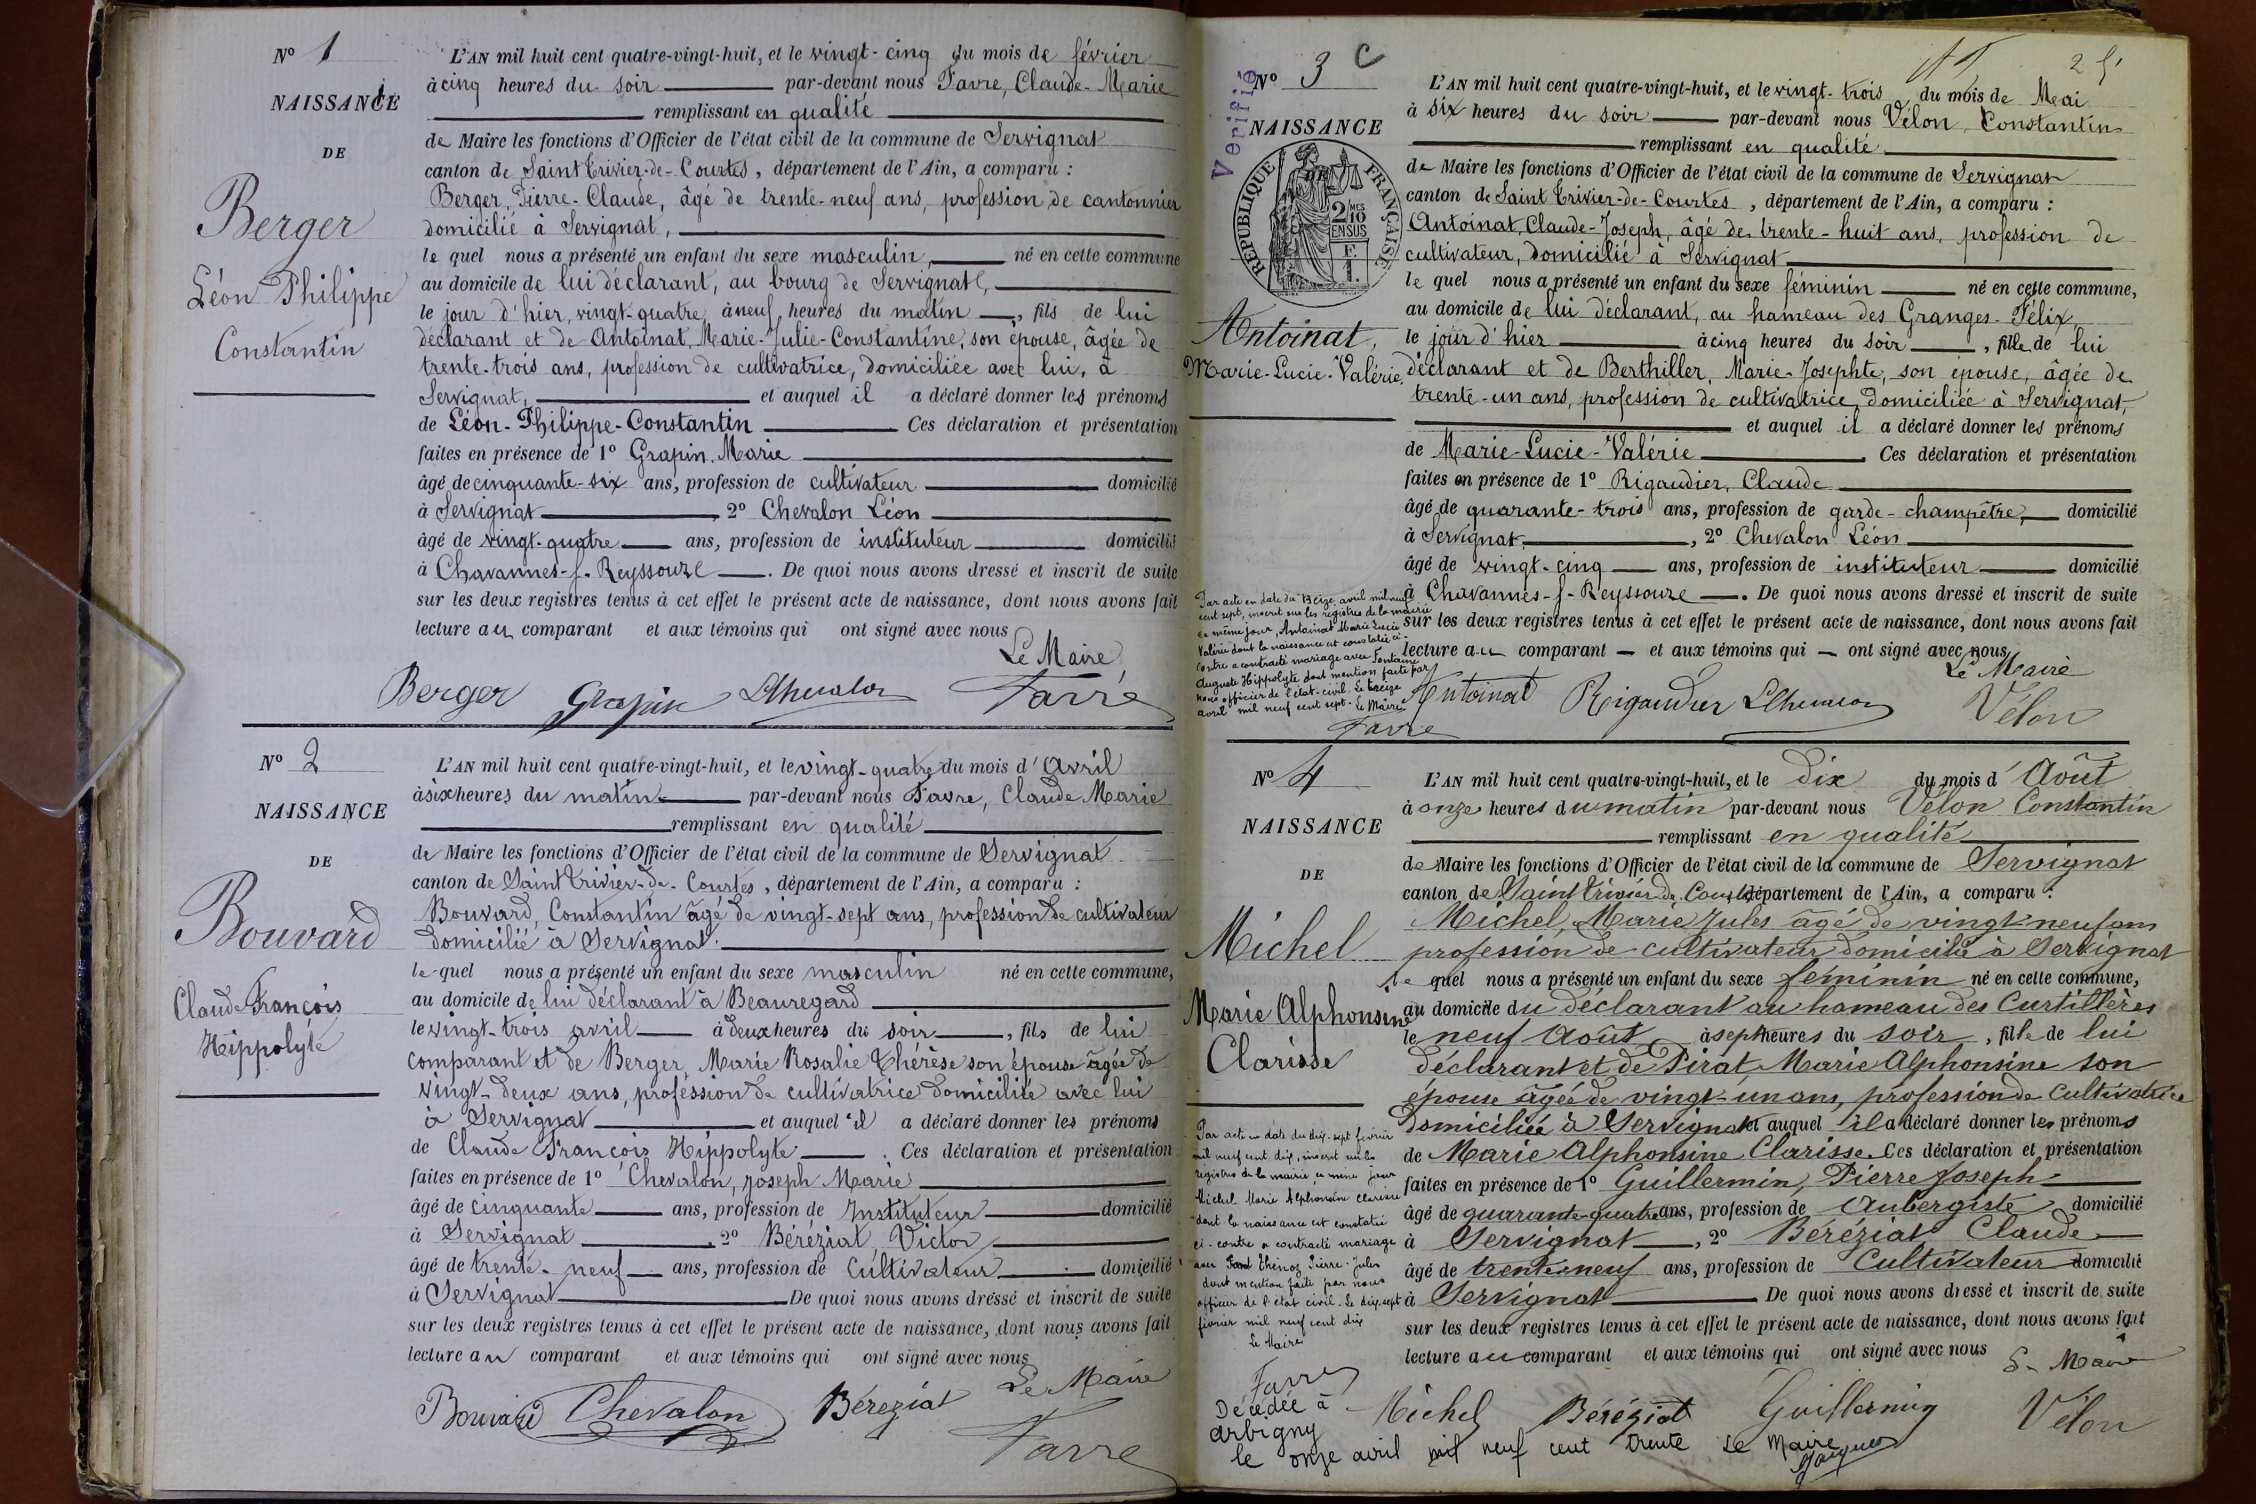 N° 1
NAISSANCE
DE
Berger
Léon Philippe
Constantin
L'AN mil huit cent quatre-vingt-huit, et le vingt-cinq du mois de février
à cinq heures du soir par-devant nous Favre, Claude-Marie
remplissant en qualité
de Maire les fonctions d'Officier de l'état civil de la commune de Servignat
canton de Saint Trivier-de-Courtes, département de l'Ain, a comparu :
Berger, Pierre-Claude, âgé de trente-neuf ans, profession de cantonnier
domicilié à Servignat,
le quel nous a présenté un enfant du sexe masculin, né en cette commune
au domicile de lui déclarant, au bourg de Servignat,
le jour d'hier, vingt-quatre, à neuf heures du matin, fils de lui
déclarant et de Antoinat, Marie-Julie-Constantine, son épouse, âgée de
trente-trois ans, profession de cultivatrice, domiciliée avec lui, à
Servignat, et auquel il a déclaré donner les prénoms
de Léon-Philippe-Constantin Ces déclaration et présentation
faites en présence de 1° Grapin, Marie
âgé de cinquante-six ans, profession de cultivateur domicilié
à Servignat 2° Chevalon Léon
âgé de vingt-quatre ans, profession de instituteur domicilié
à Chavannes-s-Reyssouze. De quoi nous avons dressé et inscrit de suite
sur les deux registres tenus à cet effet le présent acte de naissance, dont nous avons fait
lecture au comparant et aux témoins qui ont signé avec nous
Le Maire
Berger Grapin LChevalon Favre
N° 2
NAISSANCE
DE
Bouvard
Claude François
Hippolyte
L'AN mil huit cent quatre-vingt-huit, et le vingt-quatre du mois d'Avril
à six heures du matin par-devant nous Favre, Claude Marie
remplissant en qualité
de Maire les fonctions d'Officier de l'état civil de la commune de Servignat
canton de Saint Trivier-de-Courtes, département de l'Ain, a comparu :
Bouvard, Constantin âgé de vingt-sept ans, profession de cultivateur
domicilié à Servignat.
le quel nous a présenté un enfant du sexe masculin né en cette commune,
au domicile de lui déclarant à Beauregard
le vingt-trois avril à deux heures du soir, fils de lui
comparant et de Berger, Marie Rosalie Thérèse son épouse âgée de
vingt-deux ans, profession de cultivatrice domiciliée avec lui
à Servignat et auquel il a déclaré donner les prénoms
de Claude François Hippolyte. Ces déclaration et présentation
faites en présence de 1° Chevalon, Joseph Marie
âgé de cinquante ans, profession de Instituteur domicilié
à Servignat, 2° Béréziat, Victor
âgé de trente-neuf ans, profession de Cultivateur domicilié
à Servignat De quoi nous avons dressé et inscrit de suite
sur les deux registres tenus à cet effet le présent acte de naissance, dont nous avons fait
lecture au comparant et aux témoins qui ont signé avec nous
Le Maire
Bouvard Chevalon Béréziat Favre
25
Vérifié
N° 3 C
NAISSANCE
RÉPUBLIQUE FRANÇAISE
2 MES 10 EN SUS
E.
1.
Antoinat,
Marie-Lucie-Valérie.
L'AN mil huit cent quatre-vingt-huit, et le vingt-trois du mois de Mai
à six heures du soir par-devant nous Vélon, Constantin
remplissant en qualité
de Maire les fonctions d'Officier de l'état civil de la commune de Servignat
canton de Saint Trivier-de-Courtes, département de l'Ain, a comparu :
Antoinat, Claude-Joseph, âgé de trente-huit ans, profession de
cultivateur, domicilié à Servignat
le quel nous a présenté un enfant du sexe féminin né en cette commune,
au domicile de lui déclarant, au hameau des Granges-Félix,
le jour d'hier à cinq heures du soir, fille de lui
déclarant et de Berthiller, Marie-Josephte, son épouse, âgée de
trente-un ans, profession de cultivatrice, domiciliée à Servignat,
et auquel il a déclaré donner les prénoms
de Marie-Lucie-Valérie. Ces déclaration et présentation
faites en présence de 1° Rigaudier, Claude
âgé de quarante-trois ans, profession de garde-champêtre, domicilié
à Servignat, 2° Chevalon Léon
âgé de vingt-cinq ans, profession de instituteur domicilié
à Chavannes-s-Reyssouze. De quoi nous avons dressé et inscrit de suite
sur les deux registres tenus à cet effet le présent acte de naissance, dont nous avons fait
lecture au comparant et aux témoins qui ont signé avec nous,
Le Maire
Antoinat Rigaudier LChevalon Vélon
Par acte en date du treize avril mil neuf
cent sept, inscrit sur les registres de la mairie
ce même jour, Antoinat Marie Lucie
Valérie dont la naissance est constatée ci-
contre a contracté mariage avec Fontaine
Auguste Hippolyte dont mention faite par
nous officier de l'état-civil. Le treize
avril mil neuf cent sept. Le Maire
Favre
N° 4
NAISSANCE
DE
Michel
Marie Alphonsine
Clarisse
L'AN mil huit cent quatre-vingt-huit, et le dix du mois d'Août
à onze heures du matin par-devant nous Vélon Constantin
remplissant en qualité
de Maire les fonctions d'Officier de l'état civil de la commune de Servignat
canton de Saint Trivier de Courtes département de l'Ain, a comparu :
Michel, Marie Jules âgé de vingt-neuf ans
profession de cultivateur domicilié à Servignat
le quel nous a présenté un enfant du sexe féminin né en cette commune,
au domicile du déclarant au hameau des Curtillères
le neuf Août, à sept heures du soir, fille de lui
déclarant et de Pirat, Marie Alphonsine son
épouse âgée de vingt-un ans, profession de Cultivatrice
domiciliée à Servignat et auquel il a déclaré donner les prénoms
de Marie Alphonsine Clarisse. Ces déclaration et présentation
faites en présence de 1° Guillermin, Pierre Joseph
âgé de quarante-quatre ans, profession de Aubergiste domicilié
à Servignat, 2° Béréziat Claude
âgé de trente-neuf ans, profession de Cultivateur domicilié
à Servignat De quoi nous avons dressé et inscrit de suite
sur les deux registres tenus à cet effet le présent acte de naissance, dont nous avons fait
lecture au comparant et aux témoins qui ont signé avec nous
Le Maire
Michel Béréziat Guillermin Vélon
Par acte en date du dix-sept février
mil neuf cent dix, inscrit sur les
registres de la mairie ce même jour
Michel Marie Alphonsine Clarisse
dont la naissance est constatée
ci-contre a contracté mariage
avec Thénoz Pierre-Jules
dont mention faite par nous
officier de l'état civil. Le dix-sept
février mil neuf cent dix
Le Maire
Favre
Décédée à
Arbigny
le onze avril mil neuf cent trente Le Maire